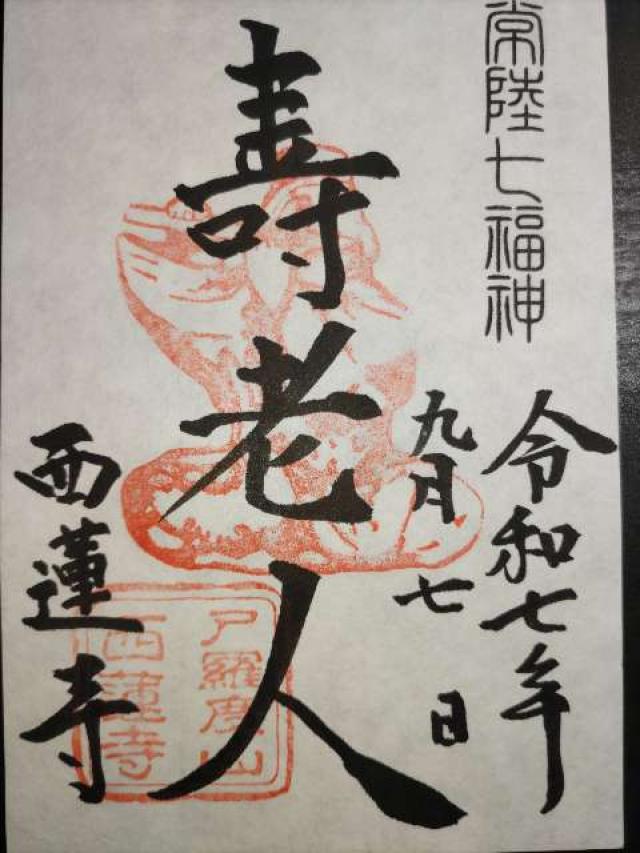 常陸七福神
令和七年
九月七日
壽老人
西蓮寺
尸羅度山
西蓮寺